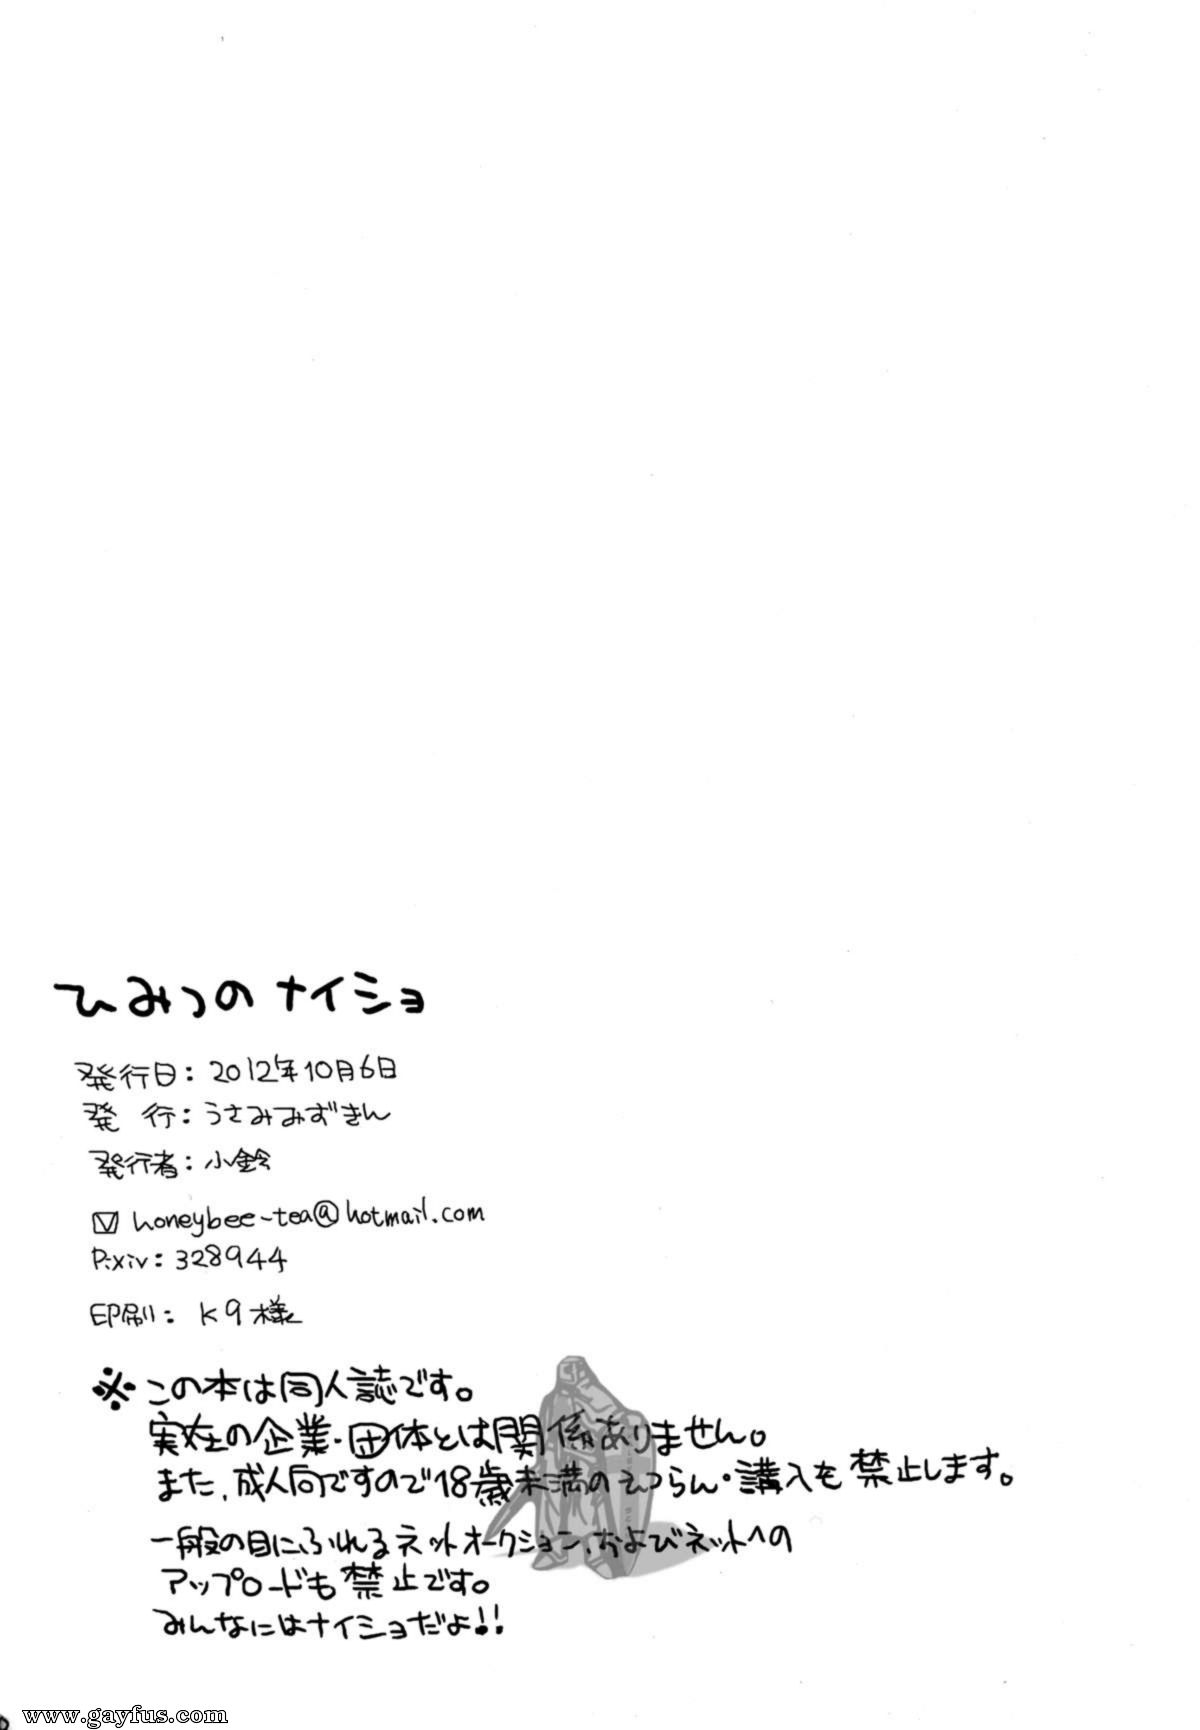 ひみつのナイショ
発行日：2012年10月6日
発　行：うさみみずきん
発行者：小鈴
honeybee-tea@hotmail.com
Pixiv：328944
印刷：K9様
※この本は同人誌です。
実在の企業・団体とは関係ありません。
また、成人向ですので18歳未満のえつらん・講入も禁止します。
一般の目にふれるネットオークション、およびネットへの
アップロードも禁止です。
みんなにはナイショだよ!!
www.gayfus.com